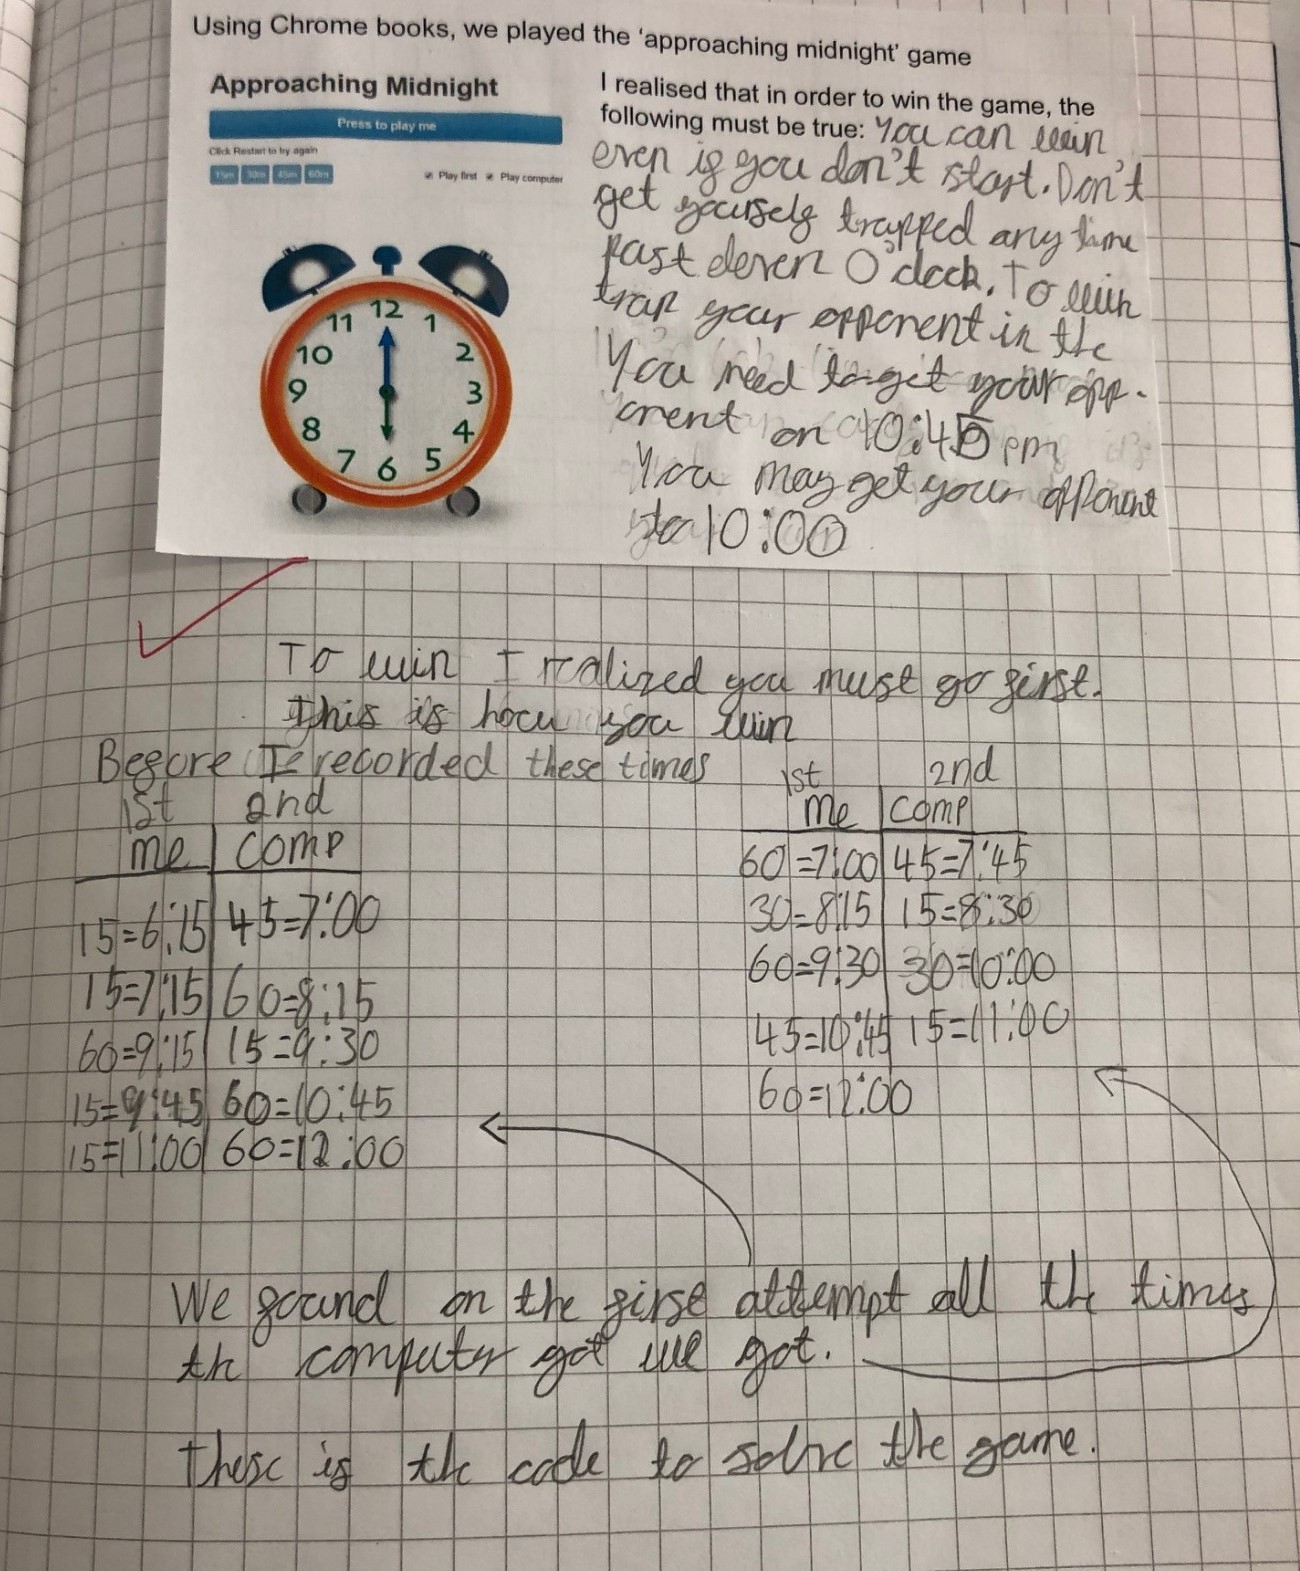 Using Chrome books, we played the 'approaching midnight' game
Approaching Midnight
Press to play me
Click Restart to try again
15m 30m 45m 60m
Play first Play computer
12
11 1
10 2
9 3
8 4
7 6 5
I realised that in order to win the game, the
following must be true: You can win
even if you don't start. Don't
get yourself trapped any time
past eleven O'clock. To win
trap your opponent in the
You need to get your opp-
onent on 10:45 pm
You may get your opponent
to 10:00
To win I realized you must go first.
this is how you win
Before I recorded these times
1st 2nd
me comp
15=6:15 45=7:00
15=7:15 60=8:15
60=9:15 15=9:30
15=9:45 60=10:45
15=11:00 60=12:00
1st 2nd
me comp
60=7:00 45=7:45
30=8:15 15=8:30
60=9:30 30=10:00
45=10:45 15=11:00
60=12:00
We found on the first attempt all the times
the computer got we got.
These is the code to solve the game.